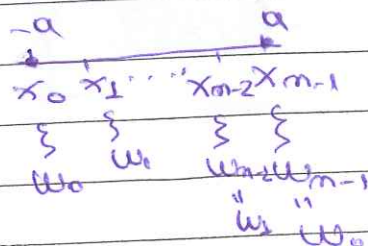 -a a
x₀ x₁ ..... xₙ₋₂ xₙ₋₁
w₀ w₁ wₙ₋₂ wₙ₋₁
w₁ w₀